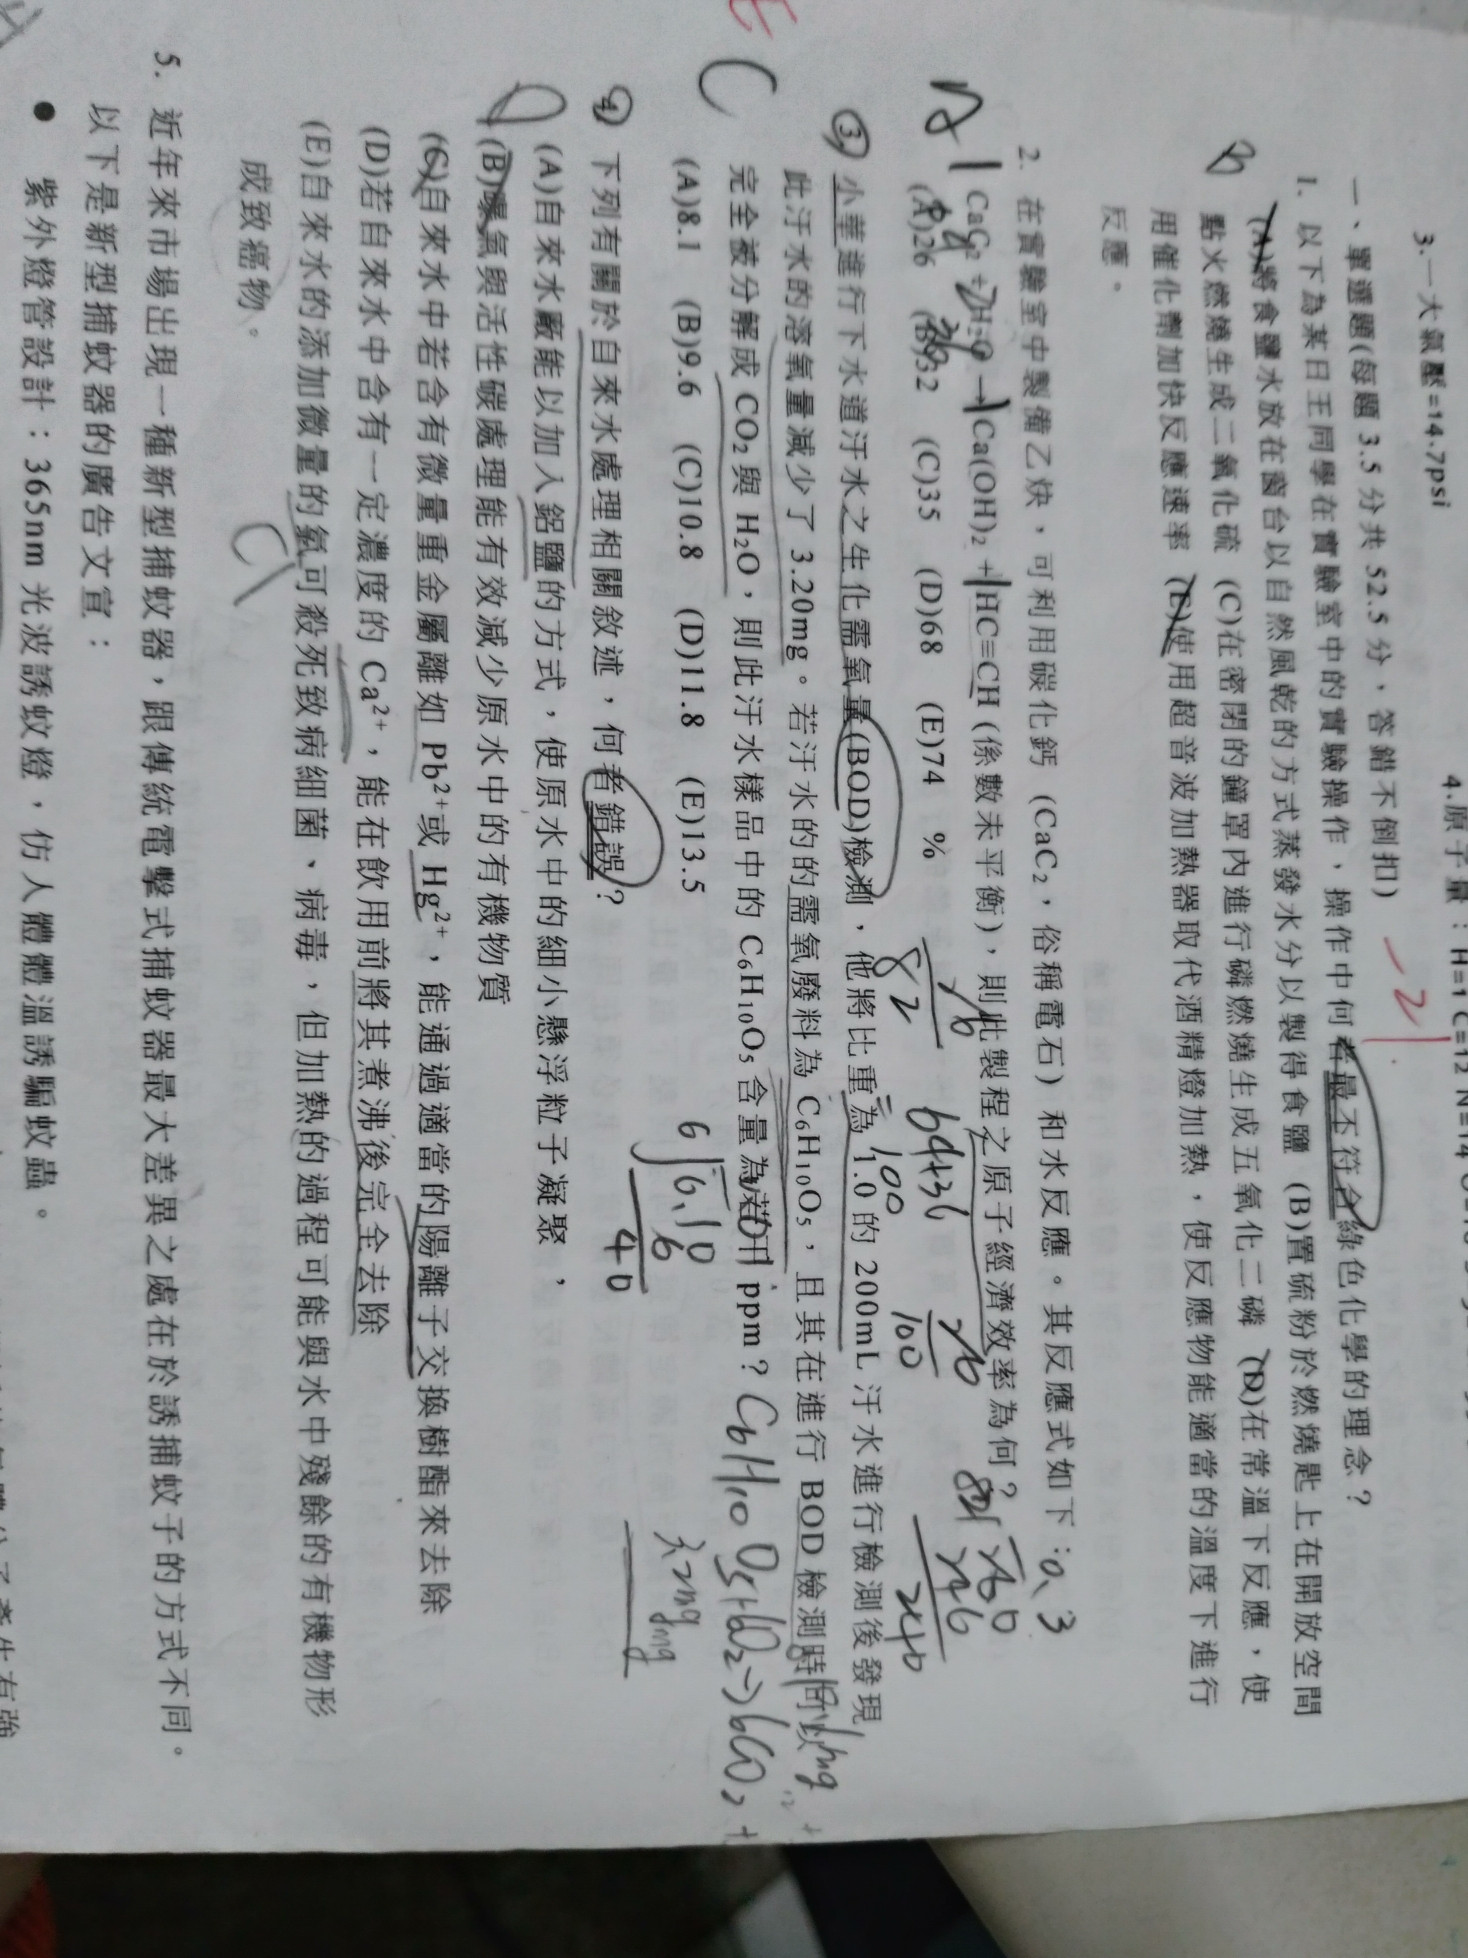 3.一大氣壓=14.7psi
4.原子量：H=1 C=12 N=14
一、單選題(每題 3.5 分共 52.5 分，答錯不倒扣)
-21
1. 以下為某日王同學在實驗室中的實驗操作，操作中何者最不符合綠色化學的理念？
B
(A)將食鹽水放在窗台以自然風乾的方式蒸發水分以製得食鹽 (B)置硫粉於燃燒匙上在開放空間
點火燃燒生成二氧化硫 (C)在密閉的鐘罩內進行磷燃燒生成五氧化二磷 (D)在常溫下反應，使
用催化劑加快反應速率 (E)使用超音波加熱器取代酒精燈加熱，使反應物能適當的溫度下進行
反應。
2. 在實驗室中製備乙炔，可利用碳化鈣 (CaC₂，俗稱電石) 和水反應。其反應式如下：
CaC₂ + 2H₂O → Ca(OH)₂ + HC≡CH (係數未平衡)，則此製程之原子經濟效率為何？
(A)26 (B)32 (C)35 (D)68 (E)74 %
26
82
64+36
100
26
100
③ 小華進行下水道汙水之生化需氧量(BOD)檢測，他將比重為 1.0 的 200mL 汙水進行檢測後發現，
此汙水的溶氧量減少了 3.20mg。若汙水的的需氧廢料為 C₆H₁₀O₅，且其在進行 BOD 檢測時可以
完全被分解成 CO₂ 與 H₂O，則此汙水樣品中的 C₆H₁₀O₅ 含量為若干 ppm？
C
C6H10O5+6O2→6CO2+
(A)8.1 (B)9.6 (C)10.8 (D)11.8 (E)13.5
3.2mg
④ 下列有關於自來水處理相關敘述，何者錯誤？
(A)自來水廠能以加入鋁鹽的方式，使原水中的細小懸浮粒子凝聚，
D
(B)曝氣與活性碳處理能有效減少原水中的有機物質
(C)自來水中若含有微量重金屬離如 Pb²⁺或 Hg²⁺，能通過適當的陽離子交換樹酯來去除
(D)若自來水中含有一定濃度的 Ca²⁺，能在飲用前將其煮沸後完全去除
(E)自來水的添加微量的氯可殺死致病細菌、病毒，但加熱的過程可能與水中殘餘的有機物形
成致癌物。
Cl
5. 近年來市場出現一種新型捕蚊器，跟傳統電擊式捕蚊器最大差異之處在於誘捕蚊子的方式不同。
以下是新型捕蚊器的廣告文宣：
● 紫外燈管設計：365nm 光波誘蚊燈，仿人體體溫誘騙蚊蟲。